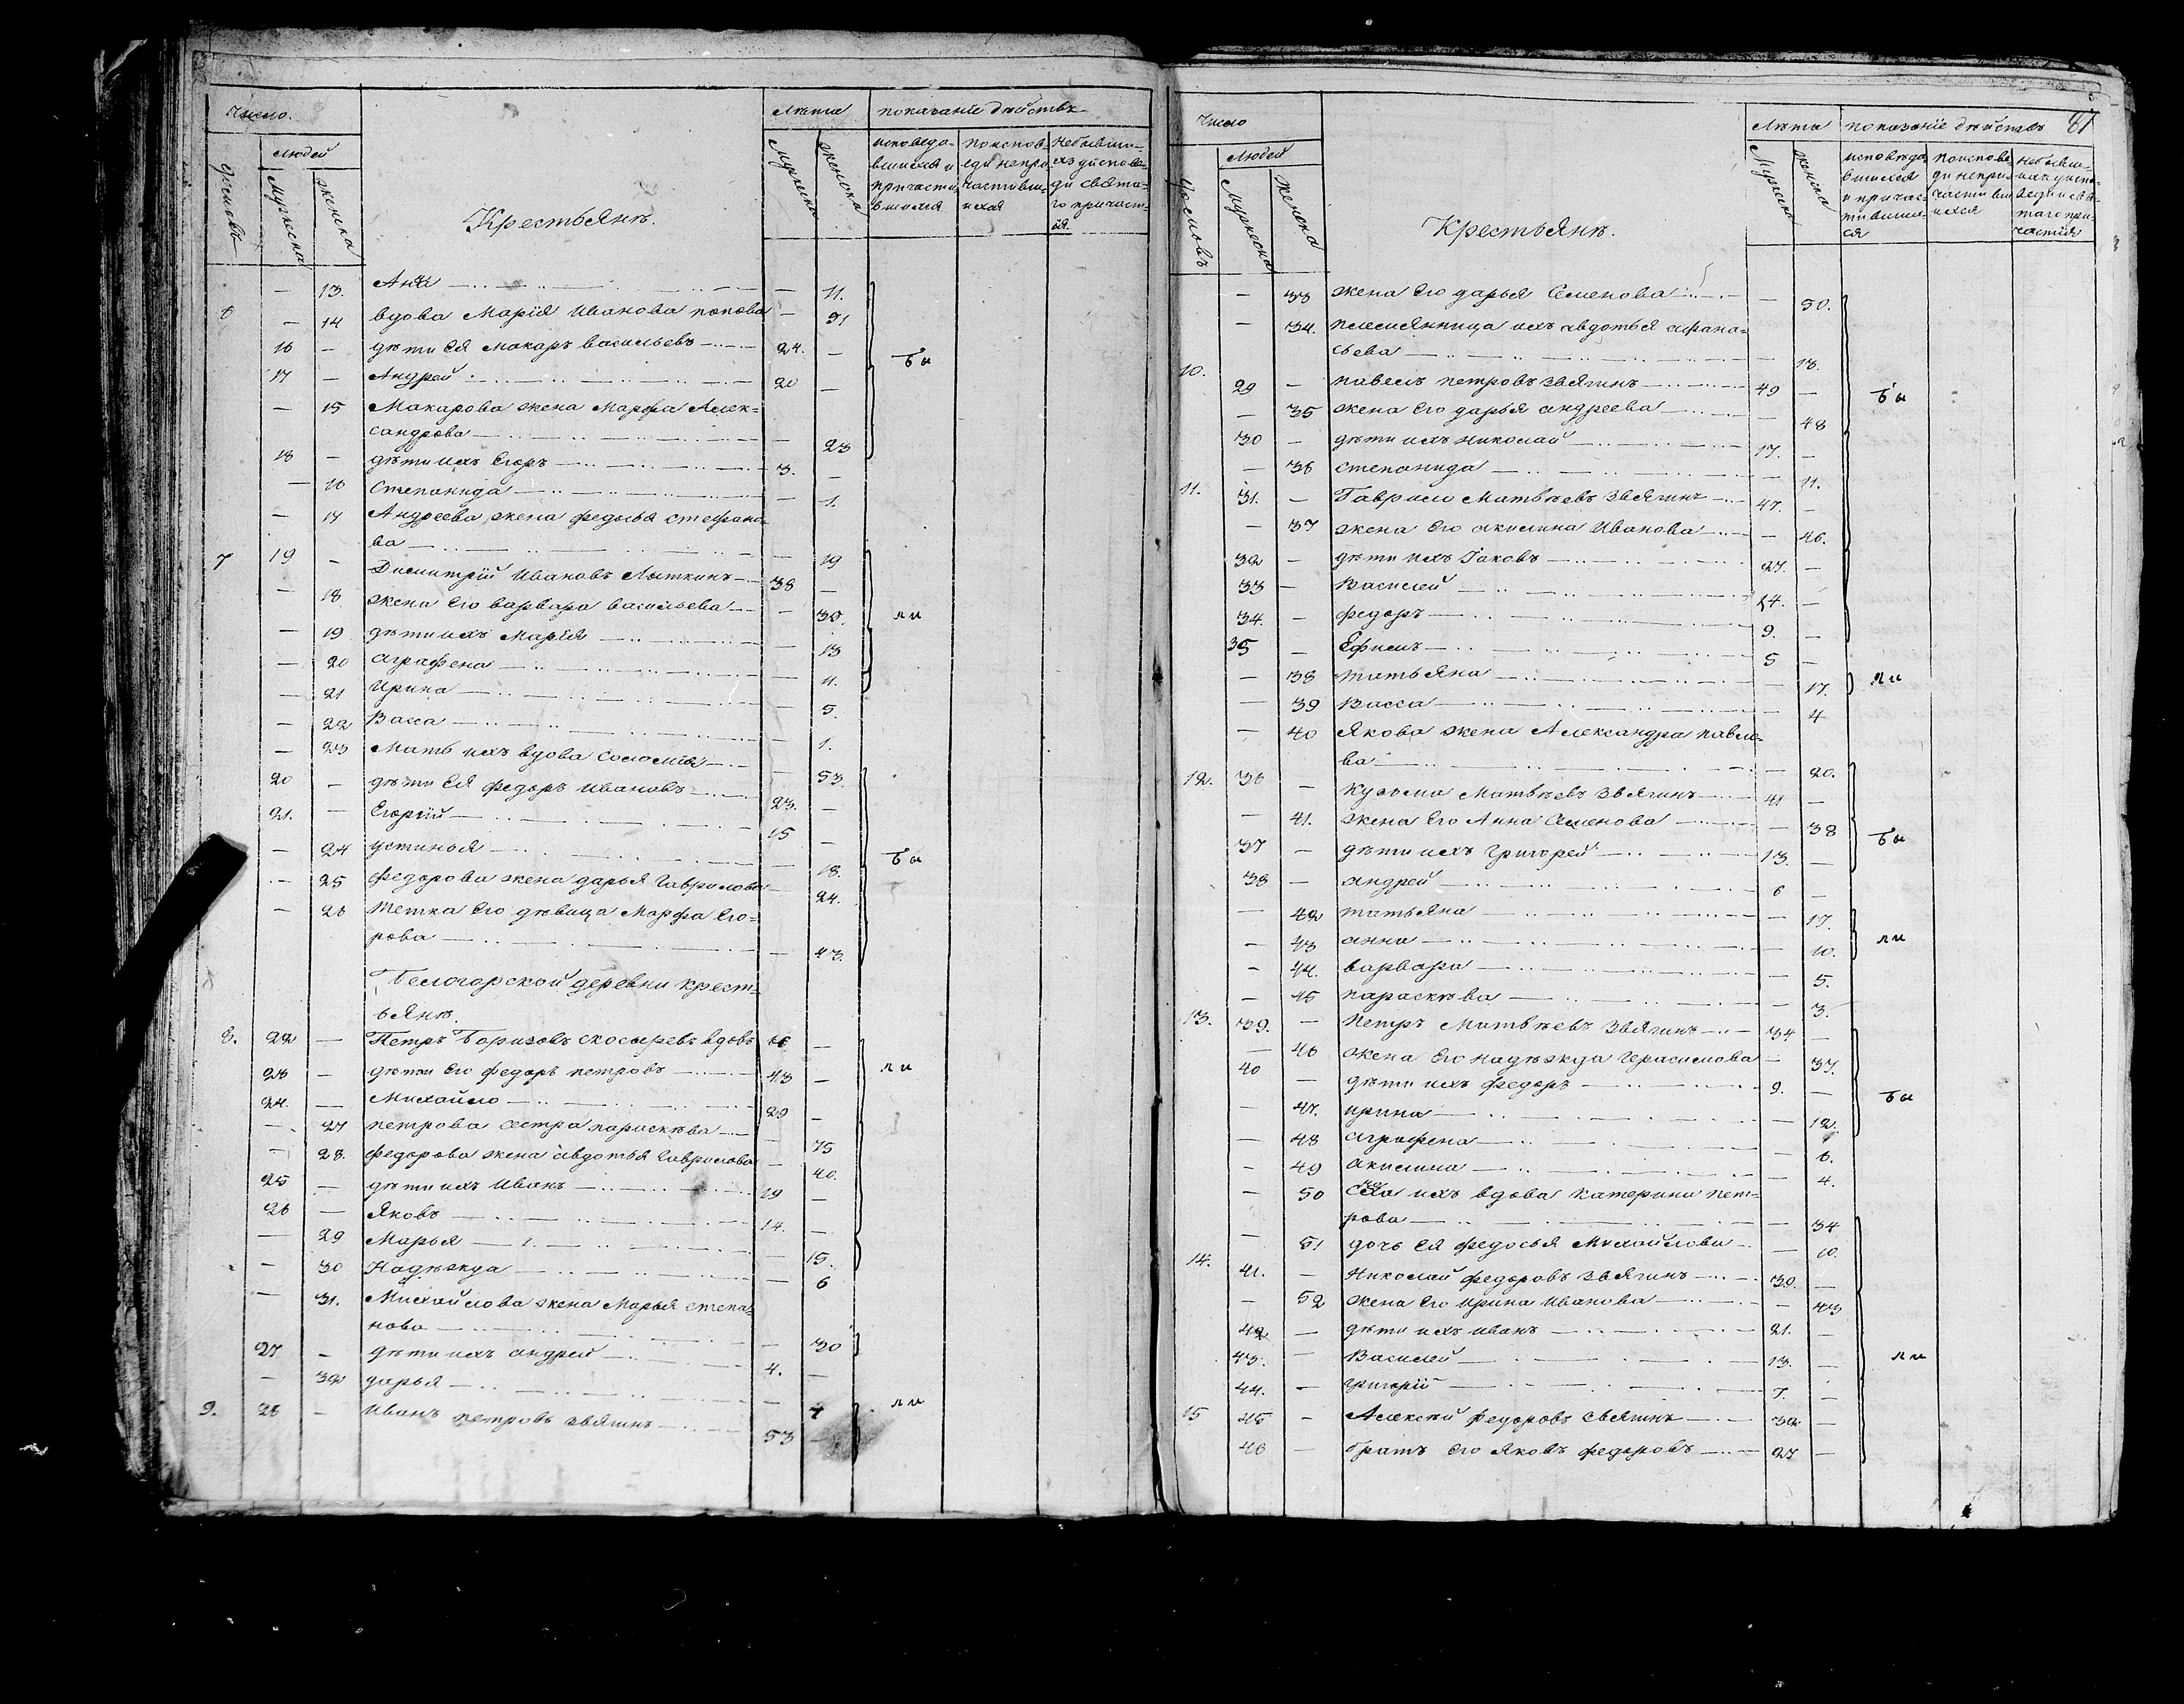 Число.
Лѣта показаніе дѣйствъ
людей
дворовъ
Мужеска
женска
Крестьянъ.
мужска
женска
исповедо-
вшихся и
причасти
вшихся
поиспов-
еди непри
частивш-
ихся
Небывши-
хъ уиспове-
ди свята-
го причаст-
ія.
— 13. Анна — 11.
6 — 14 вдова Марія Иванова попова — 51
16 — дѣти Ея Макаръ васильевъ 24. — бы
17 — Андрей 20 —
— 15 Макарова жена Марфа Алек-
сандрова — 23
18 — дѣти ихъ Егоръ 3. —
— 16 Степанида — 1.
— 17 Андреева жена федосья стефано
ва — 19
7 19 — Димитрій Ивановъ Лыткинъ 38 —
— 18 жена его варвара васильева — 35. ли
— 19 дѣти ихъ Марія — 13
— 20 аграфена — 11.
— 21 Ирина — 5.
— 22 Васса — 1.
— 23 Мать ихъ вдова Соломія — 53.
20 — дѣти Ея федоръ Ивановъ 23. —
21. — Егорій 15 —
— 24 устинья — 18. бы
— 25 федорова жена дарья Гаврилова — 24.
— 26 тетка его дѣвица Марфа Его-
рова — 43.
Белогорской деревни крест-
ьянъ.
8. 22 — Петръ Боризовъ скосыревъ вдовъ —
23 — дѣти Его федоръ петровъ 43 — ли
24. — Михайло 29 —
— 27 петрова сестра параскѣва — 75
— 28. федорова жена авдотья Гаврилова — 40.
25 — дѣти ихъ Иванъ 19 —
26 — Яковъ 14. —
— 29 Марья 15.
— 30 Надѣжда — 6
— 31. Михайлова жена Марья степа-
нова — 30
27 — дѣти ихъ андрей 4. —
— 32 дарья — 7
9. 28 — Иванъ петровъ звягинъ 53 — ли
Число
Лѣта показаніе дѣйствъ 87
людей
дворовъ
Мужеска
Женска
Крестьянъ.
Мужска
женска
исповѣда
вшихся
и причас-
тивших-
ся
поиспове-
ди непри-
частивш
ихся
небывш-
ихъ уиспо-
веди и свя-
таго при-
частія
— 33 жена Его дарья Семенова — 50.
— 34. племянница ихъ авдотья афана-
сьева — 18.
10. 29 — павелъ петровъ звягинъ 49 — бы
— 35 жена Его дарья андреева — 48
30 — дѣти ихъ николай 17. —
— 36 степанида — 11.
11. 31. — Гаврило Матвѣевъ Звягинъ 47. —
— 37 жена Его акилина Иванова — 46.
32 — дѣти ихъ Іаковъ 27. —
33 — Василей 14. —
34. — федоръ 9. —
35 — Ефимъ 5 —
— 38 татьяна — 17. ли
— 39 Васса — 4
— 40 Якова жена Александра павло-
ва — 20.
12. 36 — кузьма Матвѣевъ Звягинъ 41 —
— 41. жена Его Анна Семенова — 38 бы
37 — дѣти ихъ Григорей 13. —
38 — андрей 6 —
— 42 татьяна — 17.
— 43 анна — 10. ли
— 44. варвара — 5.
— 45 параскѣва — 3.
13. 39. — Петръ Матвѣевъ Звягинъ 34 —
— 46 жена Его надѣжда Герасимова — 37.
40 — дѣти ихъ федоръ 9. — бы
— 47. ирина — 12.
— 48 аграфена — 6.
— 49 акилина — 4.
— 50 ихъ вдова катерина пет-
рова — 34
— 51 дочь Ея федосья Михайлова — 10.
14. 41. — Николай федоровъ звягинъ 39. —
— 52 жена Его ирина Иванова — 43
42 — дѣти ихъ иванъ 21. —
43. — Василей 13. — ли
44. — григорій 7. —
15 45 — Алексѣй федоровъ Звягинъ 32 —
46 — братъ Его Яковъ федоровъ 27 —